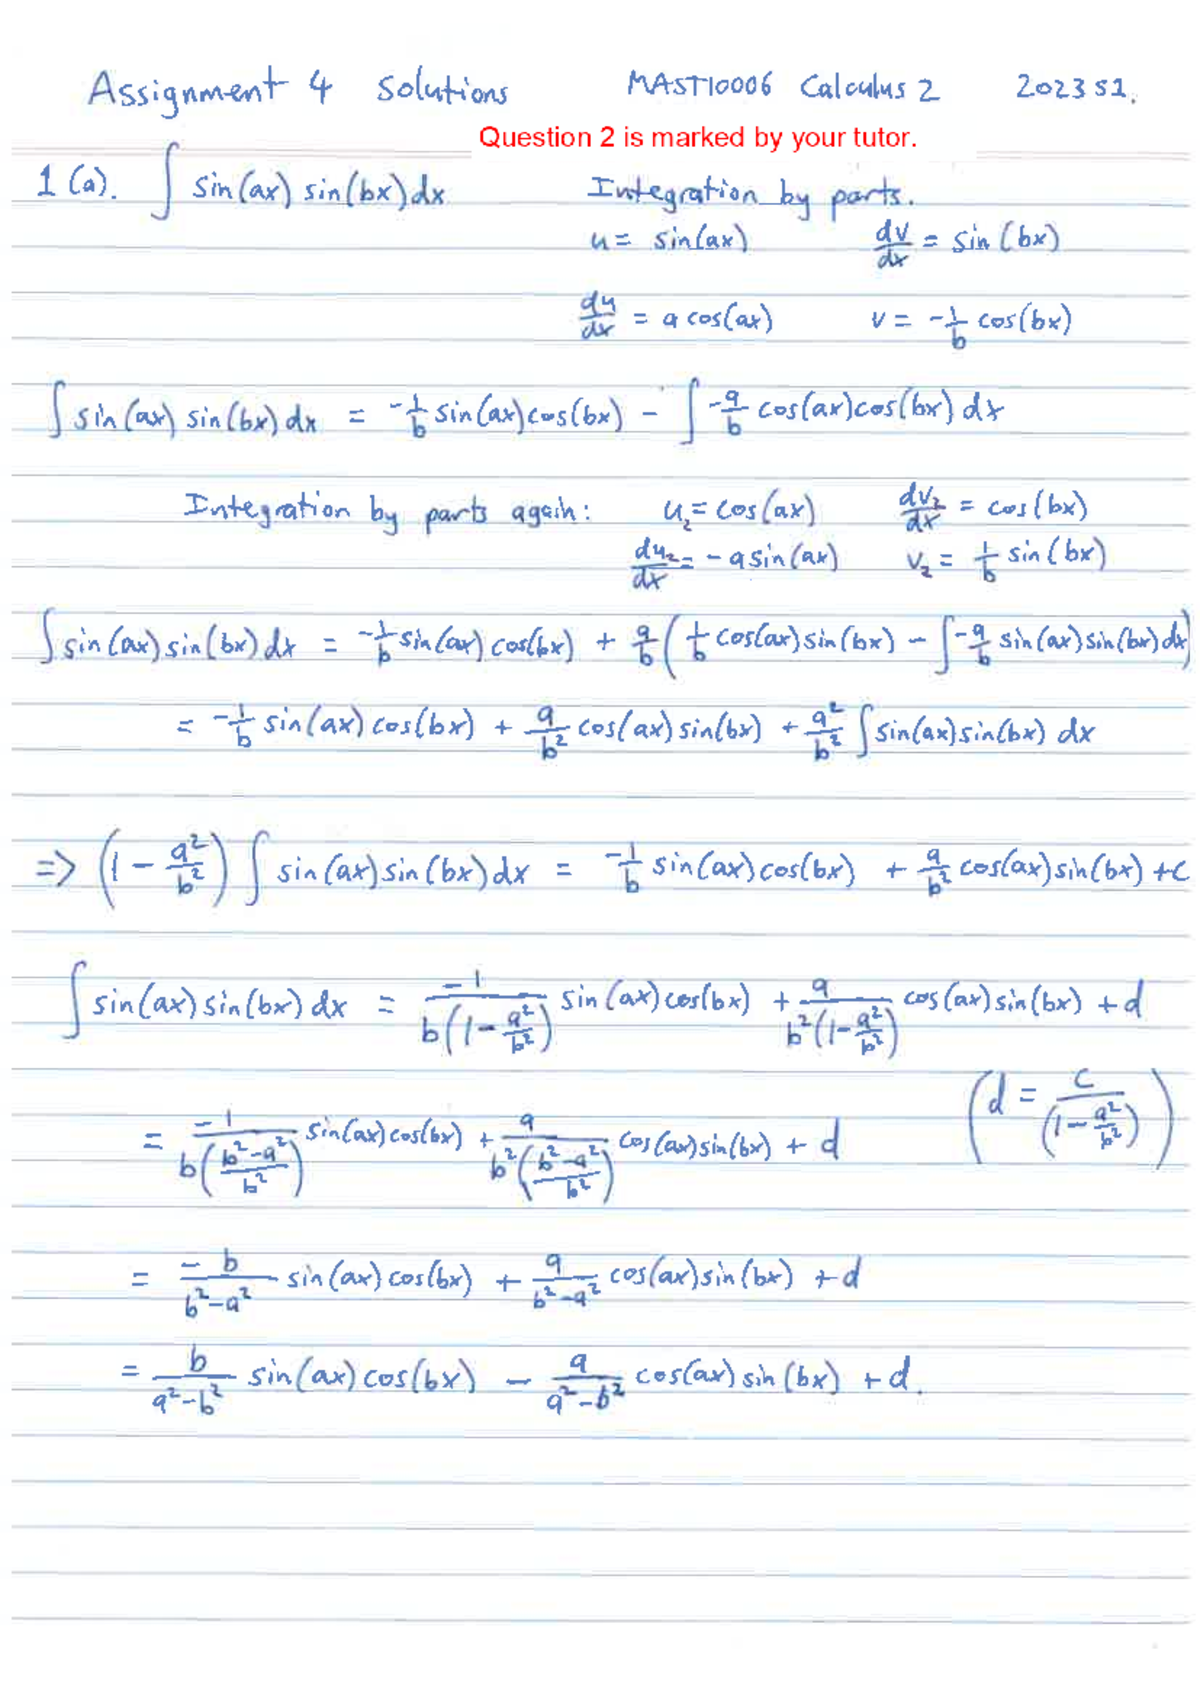 Assignment 4 Solutions MAST10006 Calculus 2 2023 S1.
Question 2 is marked by your tutor.
1 (a). ∫ sin(ax) sin(bx) dx Integration by parts.
u = sin(ax) dv/dx = sin(bx)
du/dx = a cos(ax) v = -1/b cos(bx)
∫ sin(ax) sin(bx) dx = -1/b sin(ax) cos(bx) - ∫ -a/b cos(ax) cos(bx) dx
Integration by parts again: u₂ = cos(ax) dv₂/dx = cos(bx)
du₂/dx = -a sin(ax) v₂ = 1/b sin(bx)
∫ sin(ax) sin(bx) dx = -1/b sin(ax) cos(bx) + a/b ( 1/b cos(ax) sin(bx) - ∫ -a/b sin(ax) sin(bx) dx)
= -1/b sin(ax) cos(bx) + a/b² cos(ax) sin(bx) + a²/b² ∫ sin(ax) sin(bx) dx
=> (1 - a²/b²) ∫ sin(ax) sin(bx) dx = -1/b sin(ax) cos(bx) + a/b² cos(ax) sin(bx) + c
∫ sin(ax) sin(bx) dx = -1/(b(1 - a²/b²)) sin(ax) cos(bx) + a/(b²(1 - a²/b²)) cos(ax) sin(bx) + d
(d = c/(1 - a²/b²))
= -1/(b((b²-a²)/b²)) sin(ax) cos(bx) + a/(b²((b²-a²)/b²)) cos(ax) sin(bx) + d
= -b/(b²-a²) sin(ax) cos(bx) + a/(b²-a²) cos(ax) sin(bx) + d
= b/(a²-b²) sin(ax) cos(bx) - a/(a²-b²) cos(ax) sin(bx) + d.